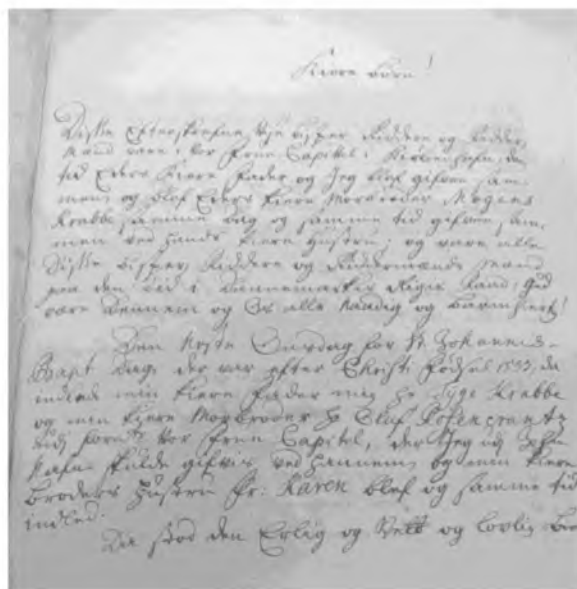 Kiere Børn!
Disse Efterskrefne Vyse Bisper Riddere og Ridder
Mænd vare i Vor Frue Capitel i Kiøbenhafn, den
tid Eders Kiere Fader og Jeg blef gifven sam-
men, og blef Eders kiere Morbroder Mogens
Krabbe samme dag og samme tid gifven sam-
men ved hands kiere Hustru; og vare alle
Disse Bisper, Riddere og Riddermænds mænd
paa den tid i Dannemarkes Riges Raad; Gud
være dennem og Os alle Naadig og barmhiert!
Den Neste Onsdag for St. Johannis-
Bapt. dag, der var efter Christi fødsel 1533, da
indled min kiere fader mig Hr Tyge Krabbe
og min kiere Morbroder Hr Oluf Rosencrantz
udj Vor Frue Capitel, der Jeg
skulde gifvis ved hannem, og min kiere
Broders Hustru Fr. Karen blef og samme tid
indled.
Da stod den Erlig og og lovlig